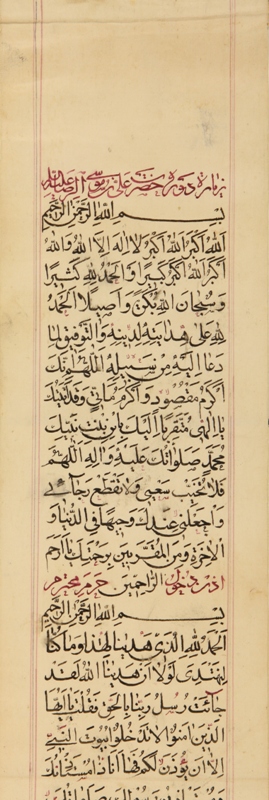 زیاره دوره حضرت علی بن موسی الرضا علیه
بسم الله الرحمن الرحیم
الله اکبر الله اکبر لا اله الا الله والله
اکبر الله اکبر کبیرا والحمد لله کثیرا
وسبحان الله بکرة واصیلا الحمد
لله علی هدایته لدینه والتوفیق لما
دعا الیه من سبیله اللهم انک
اکرم مقصود واکرم ماتی وقد اتیتک
یا الهی متقربا الیک بابن بنت نبیک
محمد صلواتک علیه واله اللهم
فلا تخیب سعیی ولا تقطع رجائی
واجعلنی عندک وجیها فی الدنیا و
الاخرة ومن المقربین برحمتک یا ارحم
اذن دخول الراحمین حرم محترم
بسم الله الرحمن الرحیم
الحمد لله الذی هدینا لهذا وما کنا
لنهتدی لولا ان هدینا الله لقد
جائت رسل ربنا بالحق فقلت یا ایها
الذین امنوا لا تدخلوا بیوت النبی
الا ان یؤذن لکم فها انا ذا